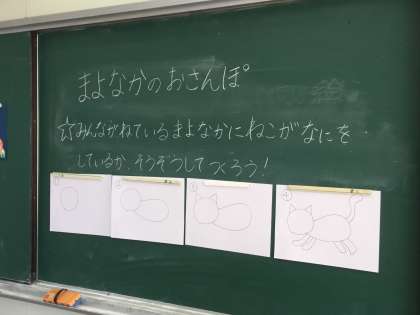 まよなかのおさんぽ
☆みんながねているまよなかにねこがなにを
しているか、そうぞうしてつくろう!
① ② ③ ④